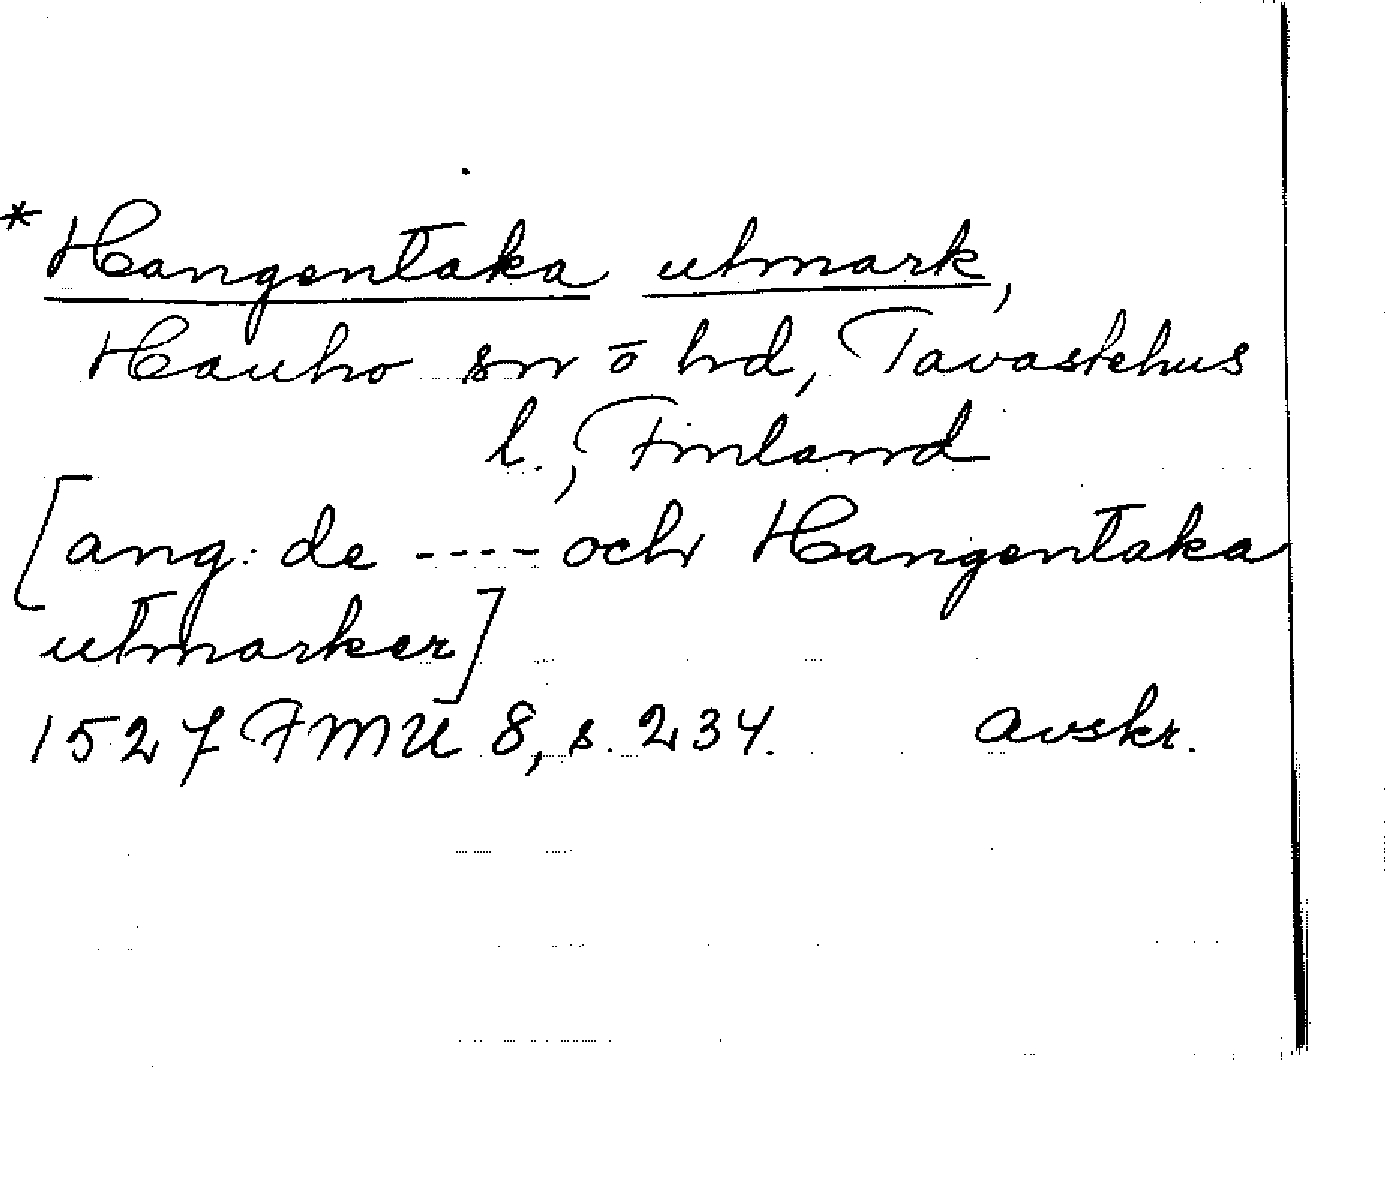 *Hangentaka utmark,
Hauho sn o hd, Tavastehus
l., Finland
[ang: de ---- och Hangentaka
utmarker]
1527 FMU 8, s. 234. avskr.